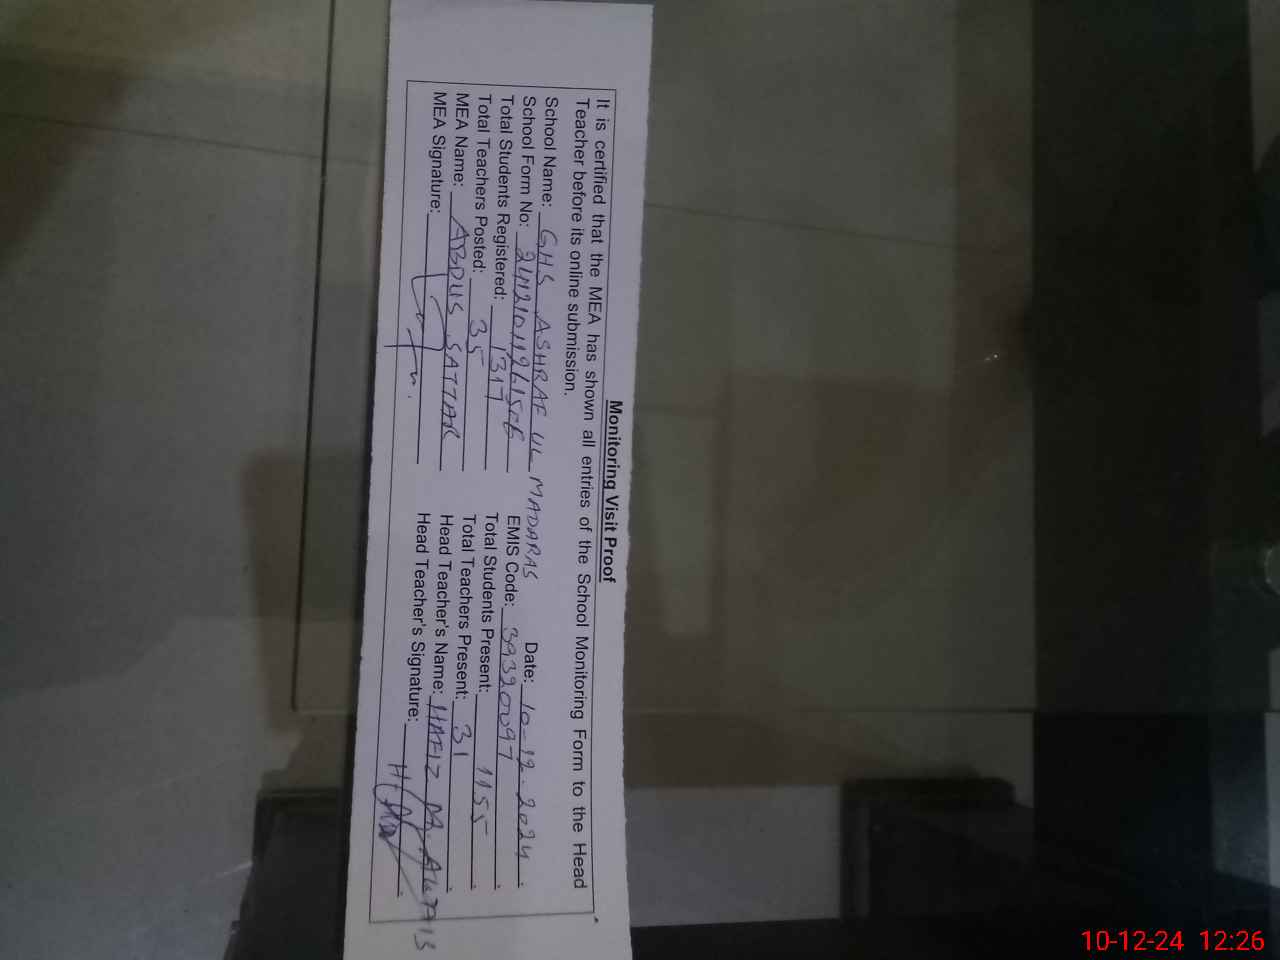 Monitoring Visit Proof
It is certified that the MEA has shown all entries of the School Monitoring Form to the Head
Teacher before its online submission.
School Name: GHS ASHRAF UL MADARAS Date: 10-12-2024
School Form No: EMIS Code: 39320097
Total Students Registered: 1317 Total Students Present: 1155
Total Teachers Posted: 35 Total Teachers Present: 31
MEA Name: ABDUS SATTAR Head Teacher's Name: HAFIZ M.
MEA Signature: Head Teacher's Signature:
10-12-24 12:26